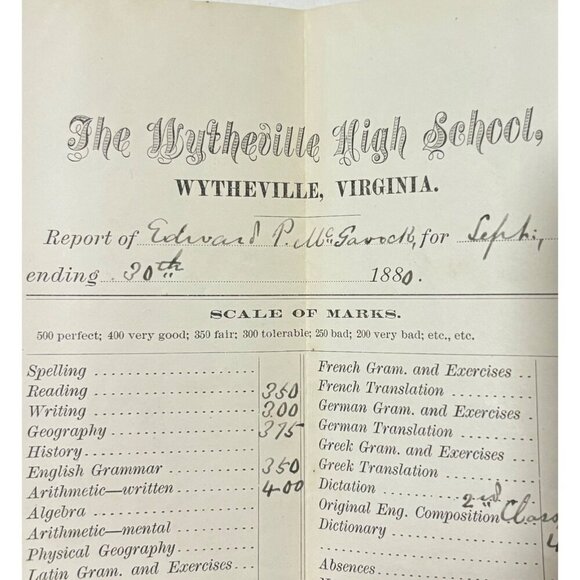 The Wytheville High School,
WYTHEVILLE, VIRGINIA.
Report of Edward P. McGavock, for Sept:,
ending 30th 1880.
SCALE OF MARKS.
500 perfect; 400 very good; 350 fair; 300 tolerable; 250 bad; 200 very bad; etc., etc.
Spelling
Reading 350
Writing 300
Geography 375
History
English Grammar 350
Arithmetic—written 400
Algebra
Arithmetic—mental
Physical Geography
Latin Gram. and Exercises
French Gram. and Exercises
French Translation
German Gram. and Exercises
German Translation
Greek Gram. and Exercises
Greek Translation
Dictation
Original Eng. Composition 2nd Class
Dictionary
Absences